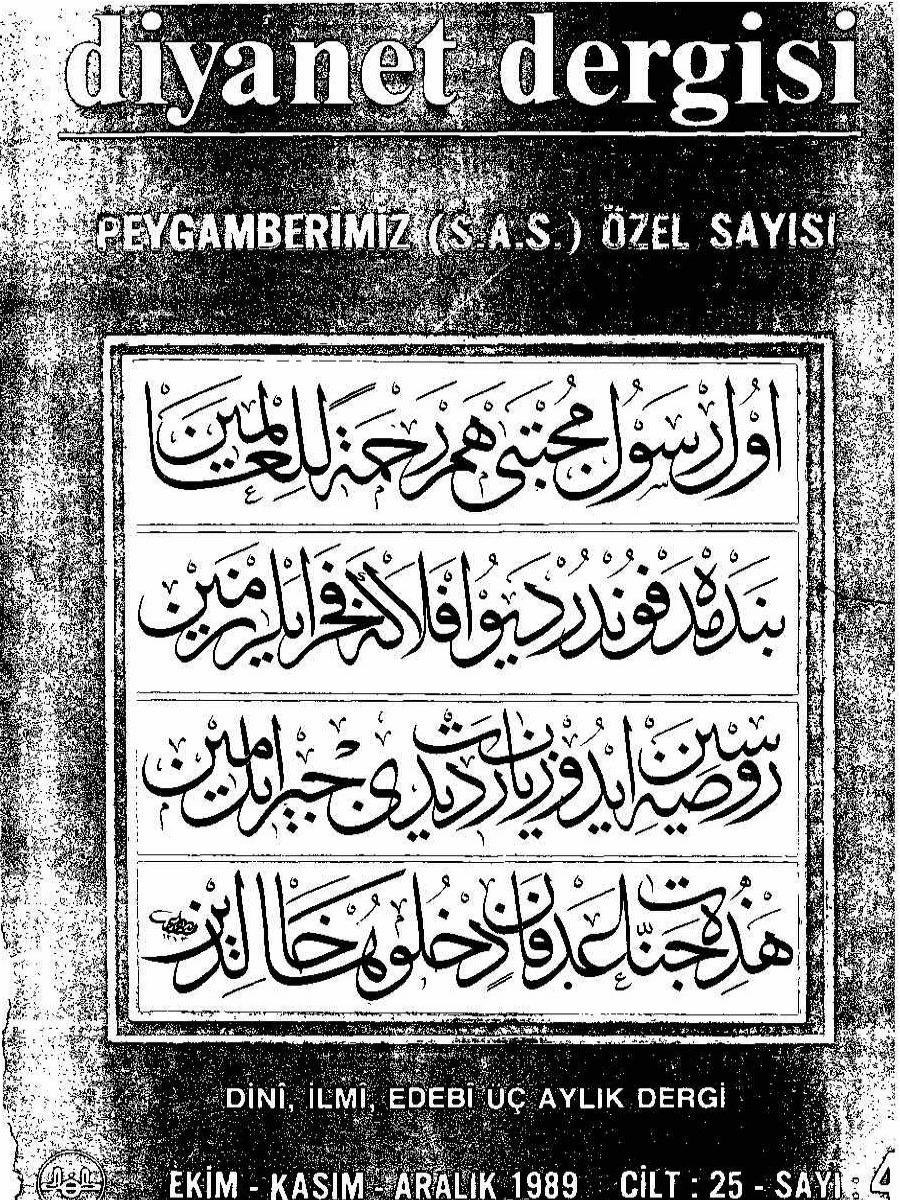 diyanet dergisi
PEYGAMBERİMİZ (S.A.S.) ÖZEL SAYISI
اول رسول مجتبى هم رحمة للعالمين
بنده مدفوندر ديو افلاكه فخر ايلر زمين
روضه سين ايدوب زيارت ديدى جبريل امين
هذه جنات عدن فادخلوها خالدين
DİNÎ, İLMÎ, EDEBÎ ÜÇ AYLIK DERGİ
EKİM - KASIM - ARALIK 1989 CİLT : 25 - SAYI : 4